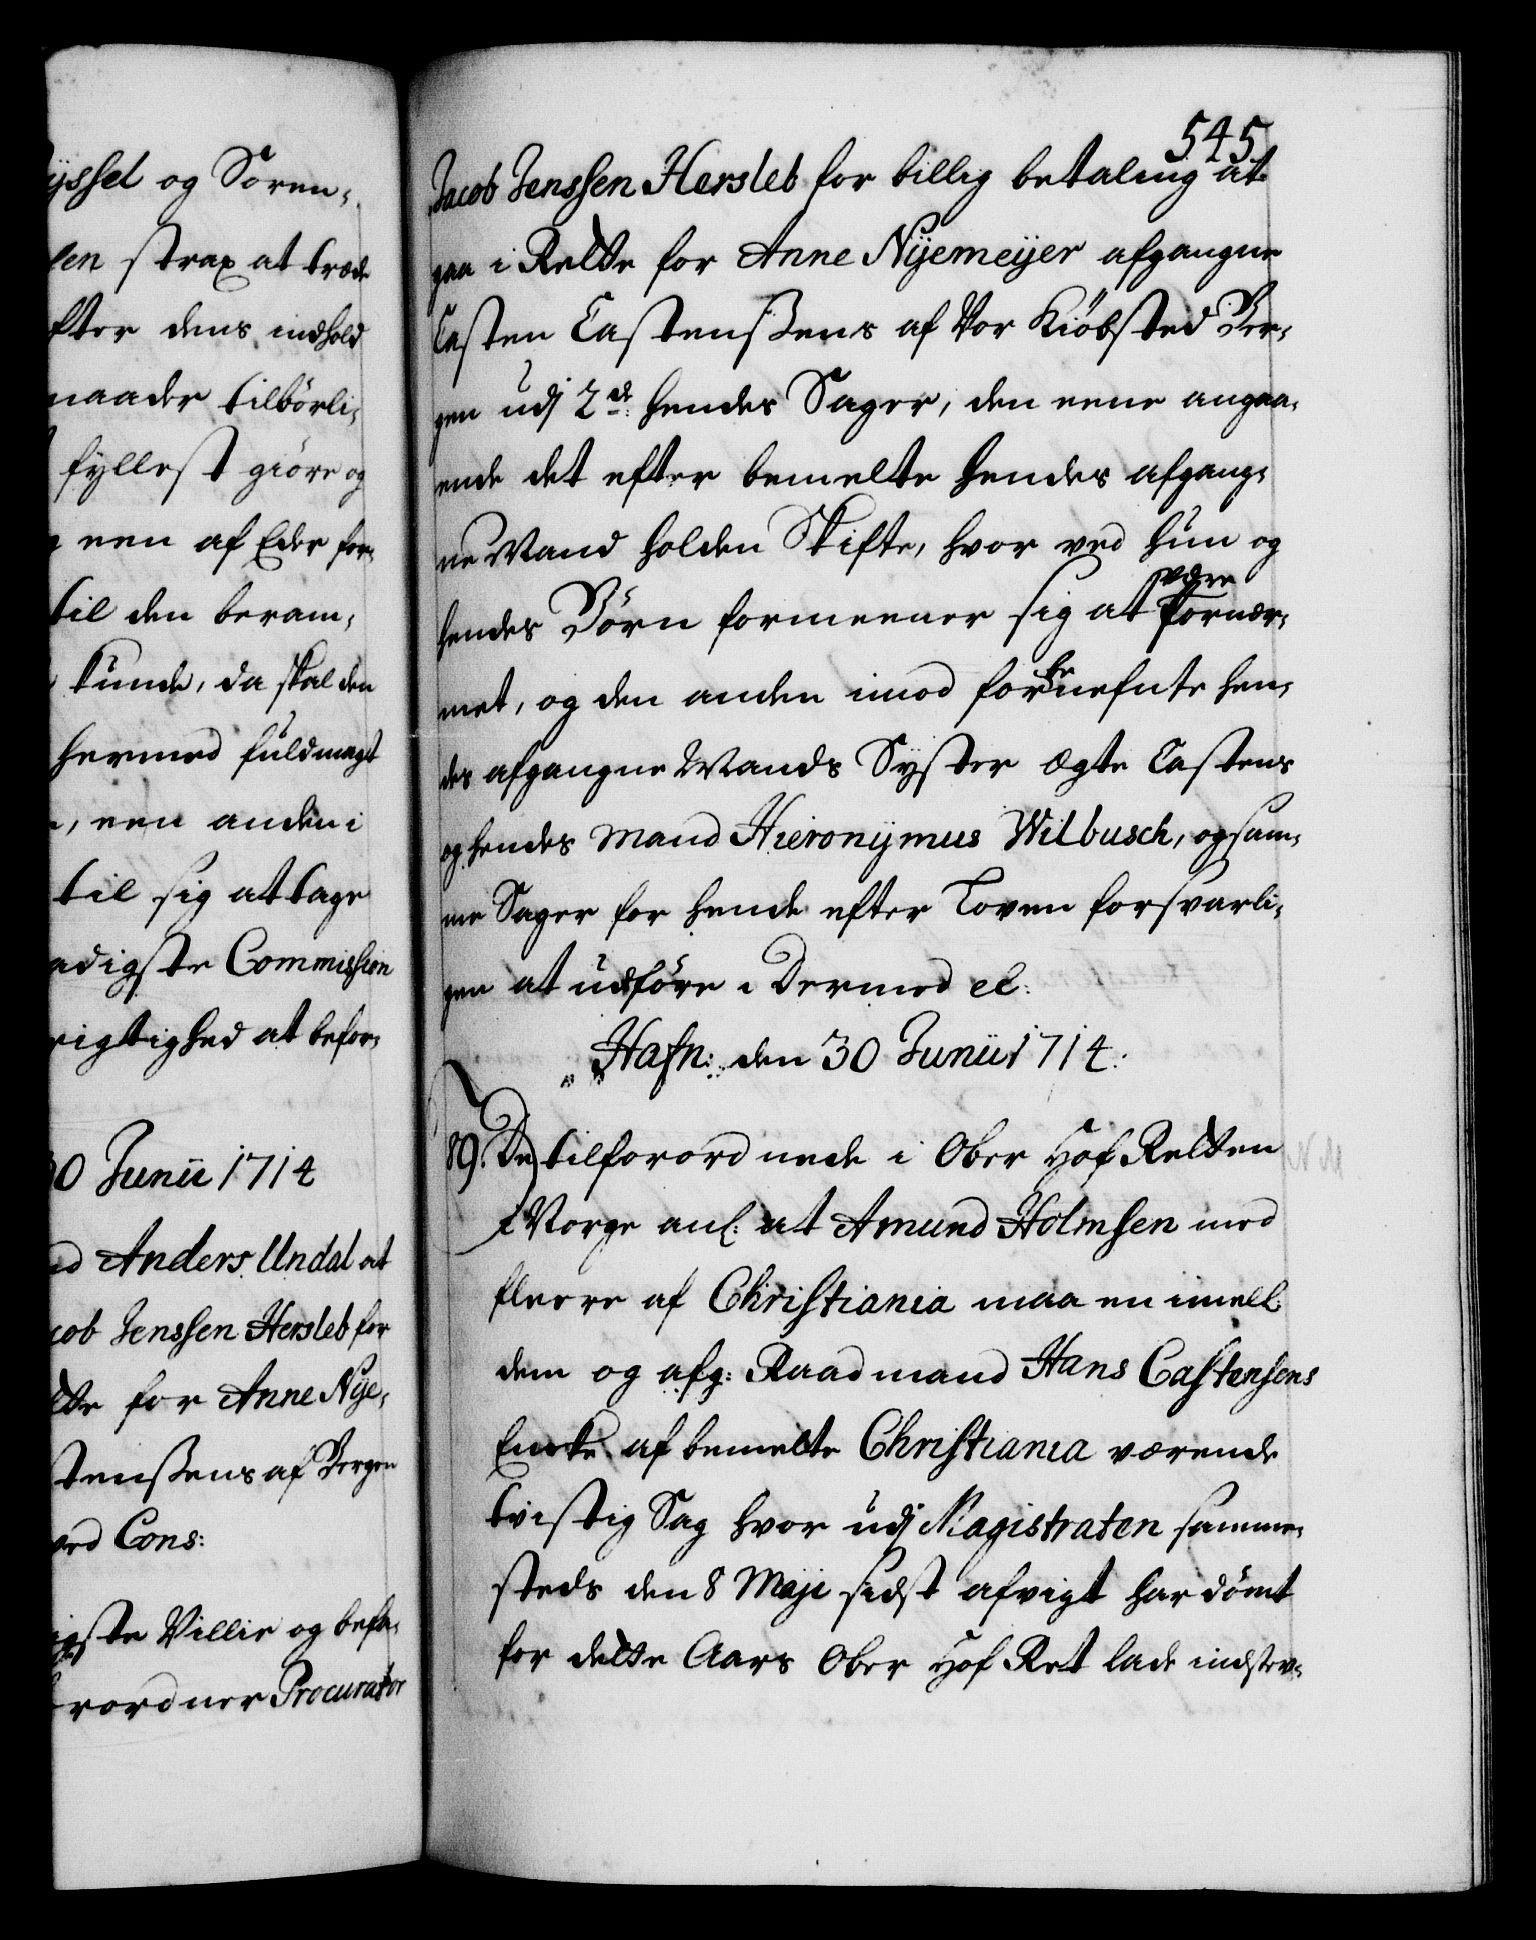 yssel og Søren-
len strax at træde
fter dens indhold
maader tilbørli-
fyllest giøre og
een af Eder for-
til den beram-
kunde, da skal den
hermed fuldmagt
, een anden i
til sig at tage
adigste Commission
rigtighed at befor-
30 Junii 1714
Anders Undal at
cob Jenssen Hersleb for
ette for Anne Nye-
stenssens af Bergen
ved Cons:
igste Villie og befa-
rordner Procurator
545
Jacob Jenssen Hersleb for billig betaling at
gaa i Rette for Anne Nÿemeÿer afgangne
Casten Castenssens af Vor Kiöbsted Ber-
gen udj 2de hendes Sager, den eene angaa-
ende det efter bemelte hendes afgang-
ne Mand holden Skifte, hvor ved hun og
hendes Börn formeener sig at være fornær-
met, og den anden imod fornefnte hen-
des afgangne Mands Syster Ægte Castens
og hendes Mand Hieronÿmus Wilbusch, og sam-
me Sager for hende efter Loven forsvarli-
gen at udföre. Dermed el:
Hafn: den 30 Junii 1714.
89. De tilforordnede i Ober Hof Retten
i Norge anl: at Amund Holmsen med
fleere af Christiania maa en imell:
dem og afg: Raadmand Hans Castensens
Encke af bemelte Christiania værende
tvistig Sag hvor udj Magistraten samme-
steds den 8 Maji sidst afvigt har dömt
for dette Aars Ober Hof Ret lade indstev-